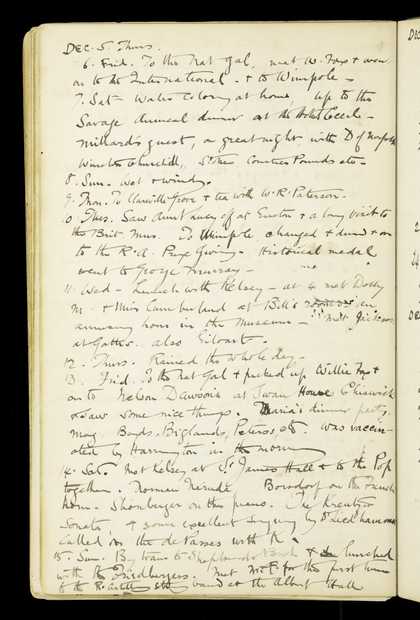 DEC. 5. Thurs.
6. Frid. To the Nat Gal, met W. Fox & went
on to the International - & to Wimpole -
7. Sat - Water Colony at home up to the
Savage annual dinner at the Hotel Cecil -
Millard's guest, a great night, with D of Norfolk
Winston Churchill, Stoker Courtney Pounds etc -
8. Sun. Wet & windy.
9. Mon. To Clanville Grove & tea with W. R. Paterson.
10 Tues. Saw Aunt away off at Euston & a long visit to
the Brit Mus. To Wimpole changed & dined & on
to the R. A. Prize Giving - Historical medal
went to George Murray -
11. Wed - Lunch with Kelsey - at 4 met Dolly
M. & Miss Cumberland at Bill's an
amusing hour in the Museum - met Jickson
at Gattis. also
12. Thurs. Rained the whole day -
13. Frid. To the Nat Gal & picked up Willie Fox &
on to Nelson Dawsons at Swan House Chiswick
& saw some nice things. Maria's dinner party,
Boyds, Biglands, Peters, etc. Was vaccin-
ated by Harrington in the morning
14. Sat. Met Kelsey at St James Hall & to the Pop
together. Norman Neruda Borsdorf on the French
horn - Shonberger on the piano. The Kreutzer
Sonata, & some excellent singing by
called on the de Passes with K.
15. Sun. By train to Shepherds Bush & lunched
with the Friedbergers. Met for the first time
& the band at the Albert Hall